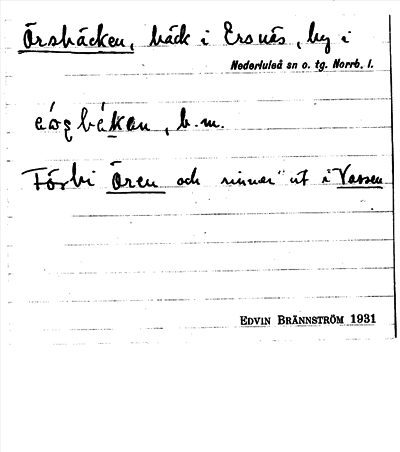 Örsbäcken, bäck i Ersnäs, by i
Nederluleå sn o. tg. Norrb. l.
b. m.
Förbi Ören och rinner ut i Vassen
EDVIN BRÄNNSTRÖM 1931